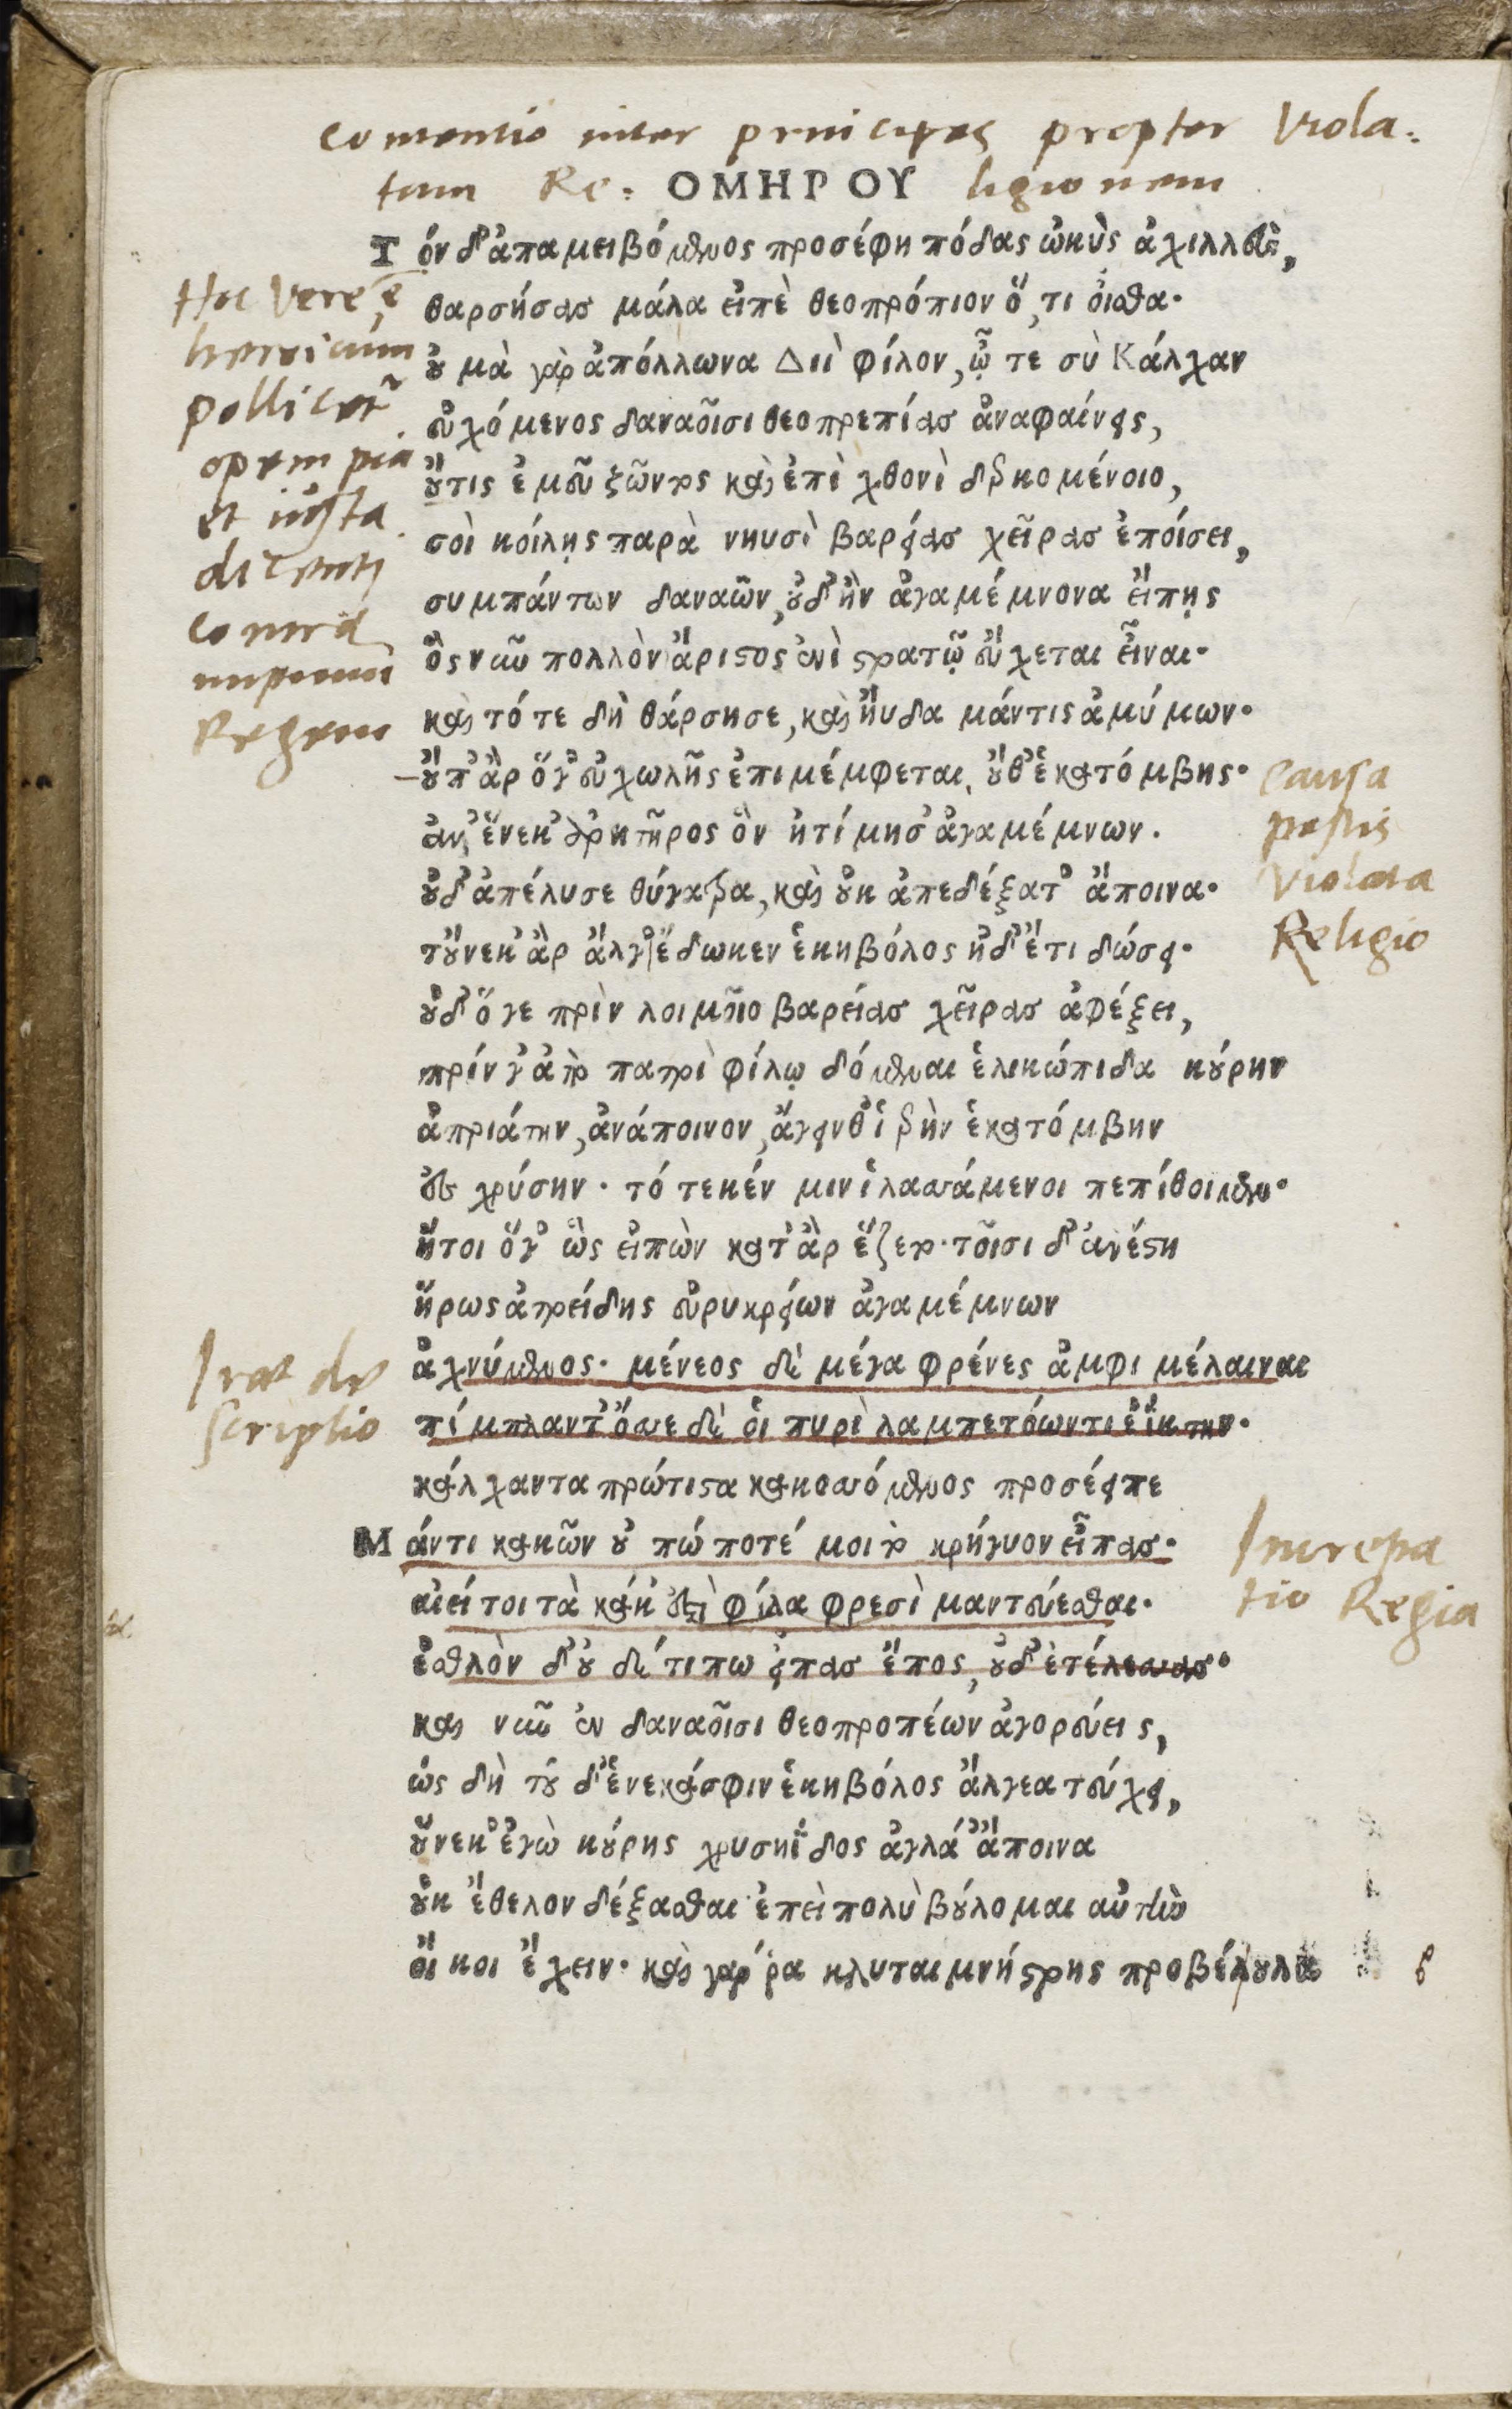 Contentio inter principes propter viola:
tam Re: ΟΜΗΡΟΥ ligionem
Τόν δ' ἀπαμειβόμενος προσέφη πόδας ὠκὺς ἀχιλλεὺς,
θαρσήσας μάλα εἰπὲ θεοπρόπιον ὅ, τι οἶσθα·
οὐ μὰ γὰρ ἀπόλλωνα Διὶ φίλον, ᾧ τε σὺ Κάλχαν
εὐχόμενος δαναοῖσι θεοπρεπίας ἀναφαίνεις,
οὔτις ἐμεῦ ζῶντος καὶ ἐπὶ χθονὶ δερκομένοιο,
σοὶ κοίλῃς παρὰ νηυσὶ βαρείας χεῖρας ἐποίσει,
συμπάντων δαναῶν, οὐδ' ἢν ἀγαμέμνονα εἴπῃς
ὃς νῦν πολλὸν ἄριστος ἐνὶ στρατῷ εὔχεται εἶναι·
καὶ τότε δὴ θάρσησε, καὶ ηὔδα μάντις ἀμύμων·
οὔτ' ἂρ ὅγ' εὐχωλῆς ἐπιμέμφεται, οὔθ' ἑκατόμβης·
ἀλλ' ἕνεκ' ἀρητῆρος ὃν ἠτίμησ' ἀγαμέμνων.
οὐδ' ἀπέλυσε θύγατρα, καὶ οὐκ ἀπεδέξατ' ἄποινα·
τοὔνεκ' ἂρ ἄλγε' ἔδωκεν ἑκηβόλος ἠδ' ἔτι δώσει·
οὐδ' ὅγε πρὶν λοιμοῖο βαρείας χεῖρας ἀφέξει,
πρίν γ' ἀπὸ πατρὶ φίλῳ δόμεναι ἑλικώπιδα κούρην
ἀπριάτην, ἀνάποινον, ἄγειν θ' ἱερὴν ἑκατόμβην
ἐς χρύσην· τό τε κέν μιν ἱλασσάμενοι πεπίθοιμεν·
ἤτοι ὅγ' ὣς εἰπὼν κατ' ἂρ ἕζετο· τοῖσι δ' ἀνέστη
ἥρως ἀτρείδης εὐρυκρείων ἀγαμέμνων
ἀχνύμενος· μένεος δὲ μέγα φρένες ἀμφι μέλαιναι
πίμπλαντ' ὄσσε δέ οἱ πυρὶ λαμπετόωντι ἐΐκτην·
κάλχαντα πρώτιστα κακοσσόμενος προσέειπε
Μάντι κακῶν οὐ πώποτέ μοι τὸ κρήγυον εἶπας·
αἰεί τοι τὰ κάκ' ἐστὶ φίλα φρεσὶ μαντεύεσθαι·
ἐσθλὸν δ' οὐδέ τι πω εἶπας ἔπος, οὐδ' ἐτέλεσσας·
καὶ νῦν ἐν δαναοῖσι θεοπροπέων ἀγορεύεις,
ὡς δὴ τοῦ δ' ἕνεκά σφιν ἑκηβόλος ἄλγεα τεύχει,
οὕνεκ' ἐγὼ κούρης χρυσηΐδος ἀγλά' ἄποινα
οὐκ ἔθελον δέξασθαι ἐπεὶ πολὺ βούλομαι αὐτὴν
οἴκοι ἔχειν· καὶ γάρ ῥα κλυταιμνήστρης προβέβουλα
Hoc vere ē
heroicum
pollicet̄
opem pia
et iusta
dicenti
contra
impium
Regem
Causa
pestis
violata
Religio
Irae de
scriptio
Increpa
tio Regia